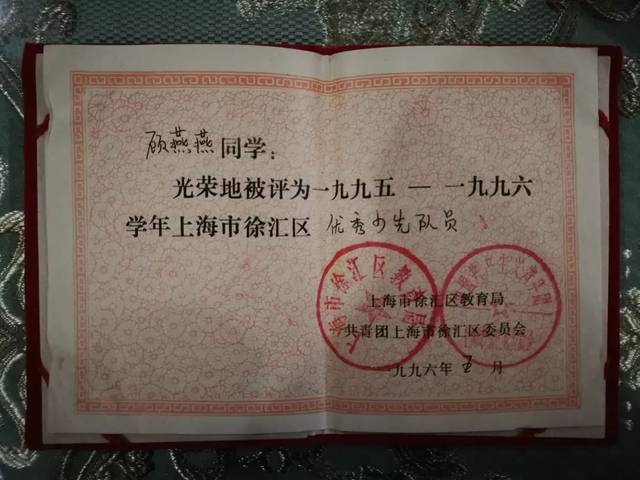 顾燕燕同学：
光荣地被评为一九九五—一九九六
学年上海市徐汇区优秀少先队员
上海市徐汇区教育局
共青团上海市徐汇区委员会
一九九六年五月
上海市徐汇区教育局